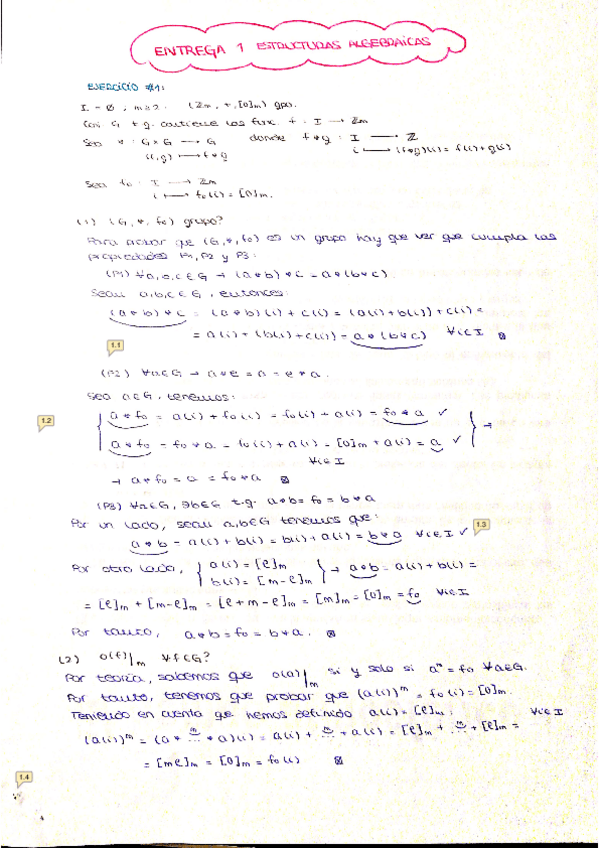 ENTREGA 1 ESTRUCTURAS ALGEBRAICAS
EJERCICIO #1:
I = Ø, m≥2. (ℤm, +, [0]m) gpo.
G t.q. contiene las fux. f: I → ℤm
Sea *: G×G → G donde f*g: I → ℤ
(f,g) ↦ f*g i ↦ (f*g)(i) = f(i)+g(i)
Sea f₀: I → ℤm
i ↦ f₀(i) = [0]m.
(1) (G, *, f₀) grupo?
Para probar que (G,*,f₀) es un grupo hay que ver que cumpla las
propiedades P1, P2 y P3:
(P1) ∀a,b,c∈G → (a*b)*c = a*(b*c).
Sean a,b,c∈G, entonces:
(a*b)*c = (a*b)(i) + c(i) = (a(i)+b(i)) + c(i) =
= a(i) + (b(i)+c(i)) = a*(b*c) ∀i∈I
1.1
(P2) ∀a∈G → a*e = a = e*a.
Sea a∈G, tenemos:
1.2
a*f₀ = a(i) + f₀(i) = f₀(i) + a(i) = f₀*a ✓
a*f₀ = f₀*a = f₀(i) + a(i) = [0]m + a(i) = a ✓ →
∀i∈I
→ a*f₀ = a = f₀*a
(P3) ∀a∈G, ∃b∈G t.q. a*b = f₀ = b*a
Por un lado, sean a,b∈G tenemos que:
a*b = a(i)+b(i) = b(i)+a(i) = b*a ∀i∈I ✓
1.3
Por otro lado, { a(i) = [e]m
b(i) = [m-e]m } → a*b = a(i)+b(i) =
= [e]m + [m-e]m = [e+m-e]m = [m]m = [0]m = f₀ ∀i∈I
Por tanto, a*b = f₀ = b*a.
(2) o(f)|m ∀f∈G?
Por teoría, sabemos que o(a)|m si y solo si aᵐ = f₀ ∀a∈G.
Por tanto, tenemos que probar que (a(i))ᵐ = f₀(i) = [0]m.
Teniendo en cuenta que hemos definido a(i) = [e]m: ∀i∈I
(a(i))ᵐ = (a * .ᵐ. * a)(i) = a(i) + .ᵐ. + a(i) = [e]m + .ᵐ. + [e]m =
= [me]m = [0]m = f₀(i)
1.4